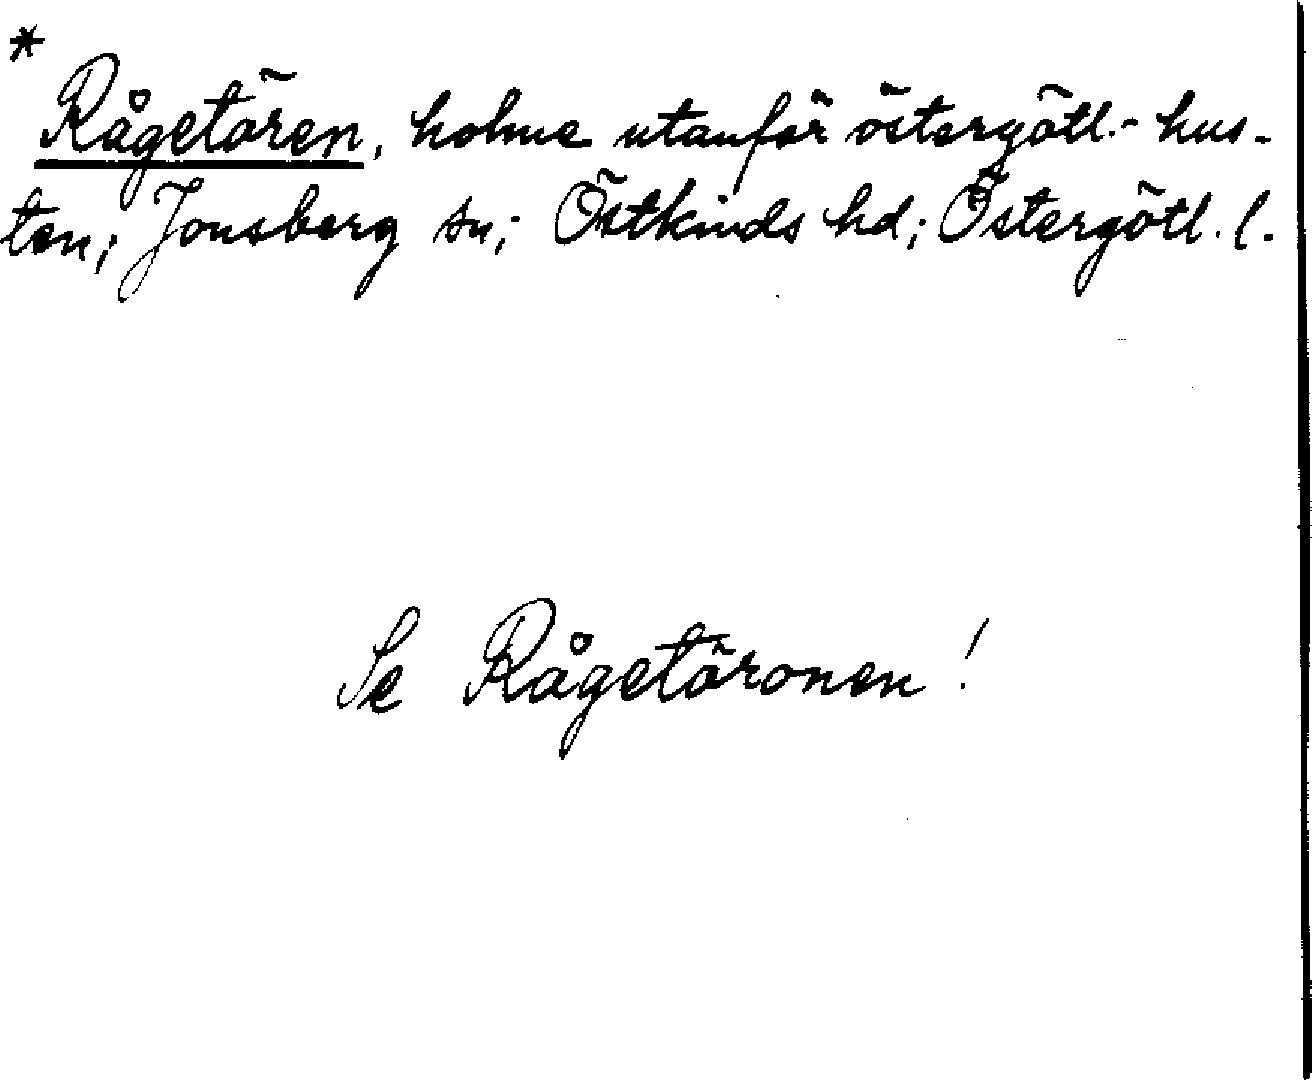 *
Rågetören, holme utanför östergötl.- kus-
ten; Jonsberg sn; Östkinds hd; Östergötl. l.
Se Rågetöronen!